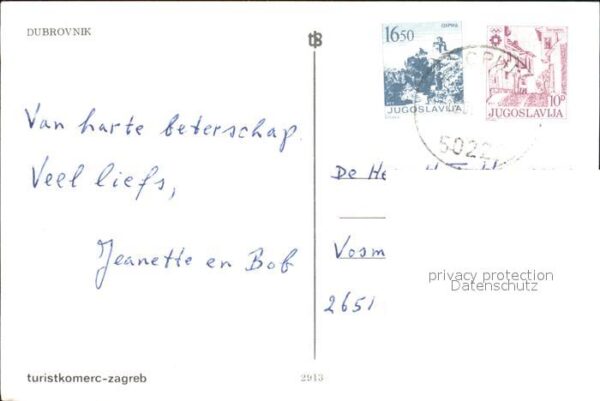 DUBROVNIK
16.50
ЈUGOSLAVIJA
10.º
JUGOSLAVIJA
5022
Van harte beterschap.
Veel liefs,
Jeanette en Bob
De He
Vosm
2651
privacy protection
Datenschutz
turistkomerc-zagreb
2913